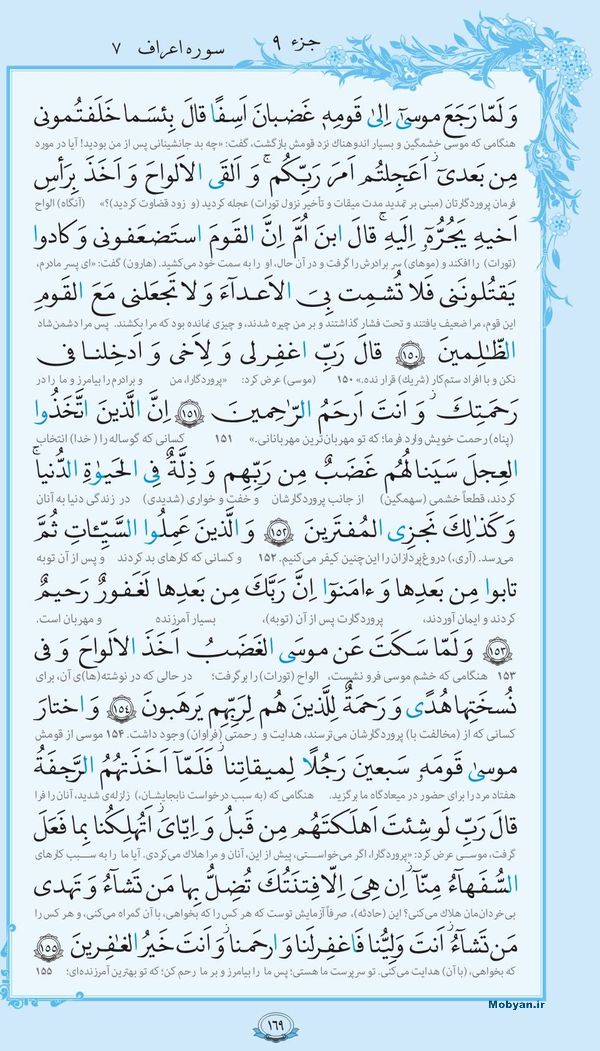 جزء ۹
سوره اعراف ۷
وَ لَمّا رَجَعَ موسىٰٓ اِلىٰ قَومِهٖ غَضبانَ اَسِفًا قالَ بِئسَما خَلَفتُمونى
هنگامی که موسی خشمگین و بسیار اندوهناك نزد قومش بازگشت، گفت: «چه بد جانشینانی پس از من بودید! آیا در مورد
مِن بَعدىٓ اَعَجِلتُم اَمرَ رَبِّكُم وَ اَلقَى الاَلواحَ وَ اَخَذَ بِرَأسِ
فرمان پروردگارتان (مبنی بر تمدید مدت میقات و تأخیر نزول تورات) عجله کردید (و زود قضاوت کردید)؟» (آنگاه) الواح
اَخيهِ يَجُرُّهٗٓ اِلَيهِ قالَ ابنَ اُمَّ اِنَّ القَومَ استَضعَفونى وَ كادوا
(تورات) را افکند و (موهای) سر برادرش را گرفت و در آن حال، او را به سمت خود می‌کشید. (هارون) گفت: «ای پسر مادرم،
يَقتُلونَنى فَلا تُشمِت بِىَ الاَعدآءَ وَ لا تَجعَلنى مَعَ القَومِ
این قوم، مرا ضعیف یافتند و تحت فشار گذاشتند و بر من چیره شدند، و چیزی نمانده بود که مرا بکشند. پس مرا دشمن‌شاد
الظّٰلِمينَ ۱۵۰ قالَ رَبِّ اغفِر لى وَ لِاَخى وَ اَدخِلنا فى
نکن و با افراد ستم‌کار (شریك) قرار نده.» ۱۵۰ (موسی) عرض کرد: «پروردگارا، من و برادرم را بیامرز و ما را در
رَحمَتِكَ وَ اَنتَ اَرحَمُ الرّٰحِمينَ ۱۵۱ اِنَّ الَّذينَ اتَّخَذُوا
(پناه) رحمت خویش وارد فرما؛ که تو مهربان‌ترین مهربانانی.» ۱۵۱ کسانی که گوساله را (خدا) انتخاب
العِجلَ سَيَنالُهُم غَضَبٌ مِن رَبِّهِم وَ ذِلَّةٌ فِى الحَيٰوةِ الدُّنيا
کردند، قطعاً خشمی (سهمگین) از جانب پروردگارشان و خفت و خواری (شدیدی) در زندگی دنیا به آنان
وَ كَذٰلِكَ نَجزِى المُفتَرينَ ۱۵۲ وَ الَّذينَ عَمِلُوا السَّيِّئاتِ ثُمَّ
می‌رسد. (آری،) دروغ‌پردازان را این‌چنین کیفر می‌کنیم. ۱۵۲ و کسانی که کارهای بد کردند و پس از آن توبه
تابوا مِن بَعدِها وَ ءامَنوٓا اِنَّ رَبَّكَ مِن بَعدِها لَغَفورٌ رَحيمٌ
کردند و ایمان آوردند، پروردگارت پس از آن (توبه)، بسیار آمرزنده و مهربان است.
۱۵۳ وَ لَمّا سَكَتَ عَن موسَى الغَضَبُ اَخَذَ الاَلواحَ وَ فى
۱۵۳ هنگامی که خشم موسی فرو نشست، الواح (تورات) را برگرفت؛ در حالی که در نوشته(ها)ی آن، برای
نُسخَتِها هُدًى وَ رَحمَةٌ لِلَّذينَ هُم لِرَبِّهِم يَرهَبونَ ۱۵۴ وَ اختارَ
کسانی که از (مخالفت با) پروردگارشان می‌ترسند، هدایت و رحمتی (فراوان) وجود داشت. ۱۵۴ موسی از قومش
موسىٰ قَومَهٗ سَبعينَ رَجُلًا لِميقاتِنا فَلَمّآ اَخَذَتهُمُ الرَّجفَةُ
هفتاد مرد را برای حضور در میعادگاه ما برگزید. هنگامی که (به سبب درخواست نابجایشان،) زلزله‌ی شدید، آنان را فرا
قالَ رَبِّ لَو شِئتَ اَهلَكتَهُم مِن قَبلُ وَ اِيّاىَ اَتُهلِكُنا بِما فَعَلَ
گرفت، موسی عرض کرد: «پروردگارا، اگر می‌خواستی، پیش از این، آنان و مرا هلاك می‌کردی. آیا ما را به سبب کارهای
السُّفَهآءُ مِنّا اِن هِىَ اِلّا فِتنَتُكَ تُضِلُّ بِها مَن تَشآءُ وَ تَهدى
بی‌خردان‌مان هلاك می‌کنی؟ این (حادثه)، صرفاً آزمایش توست که هر کس را که بخواهی، با آن گمراه می‌کنی، و هر کس را
مَن تَشآءُ اَنتَ وَلِيُّنا فَاغفِر لَنا وَ ارحَمنا وَ اَنتَ خَيرُ الغٰفِرينَ ۱۵۵
که بخواهی، (با آن) هدایت می‌کنی. تو سرپرست ما هستی؛ پس ما را بیامرز و بر ما رحم کن؛ که تو بهترین آمرزنده‌ای؛ ۱۵۵
Mobyan.ir
۱۶۹